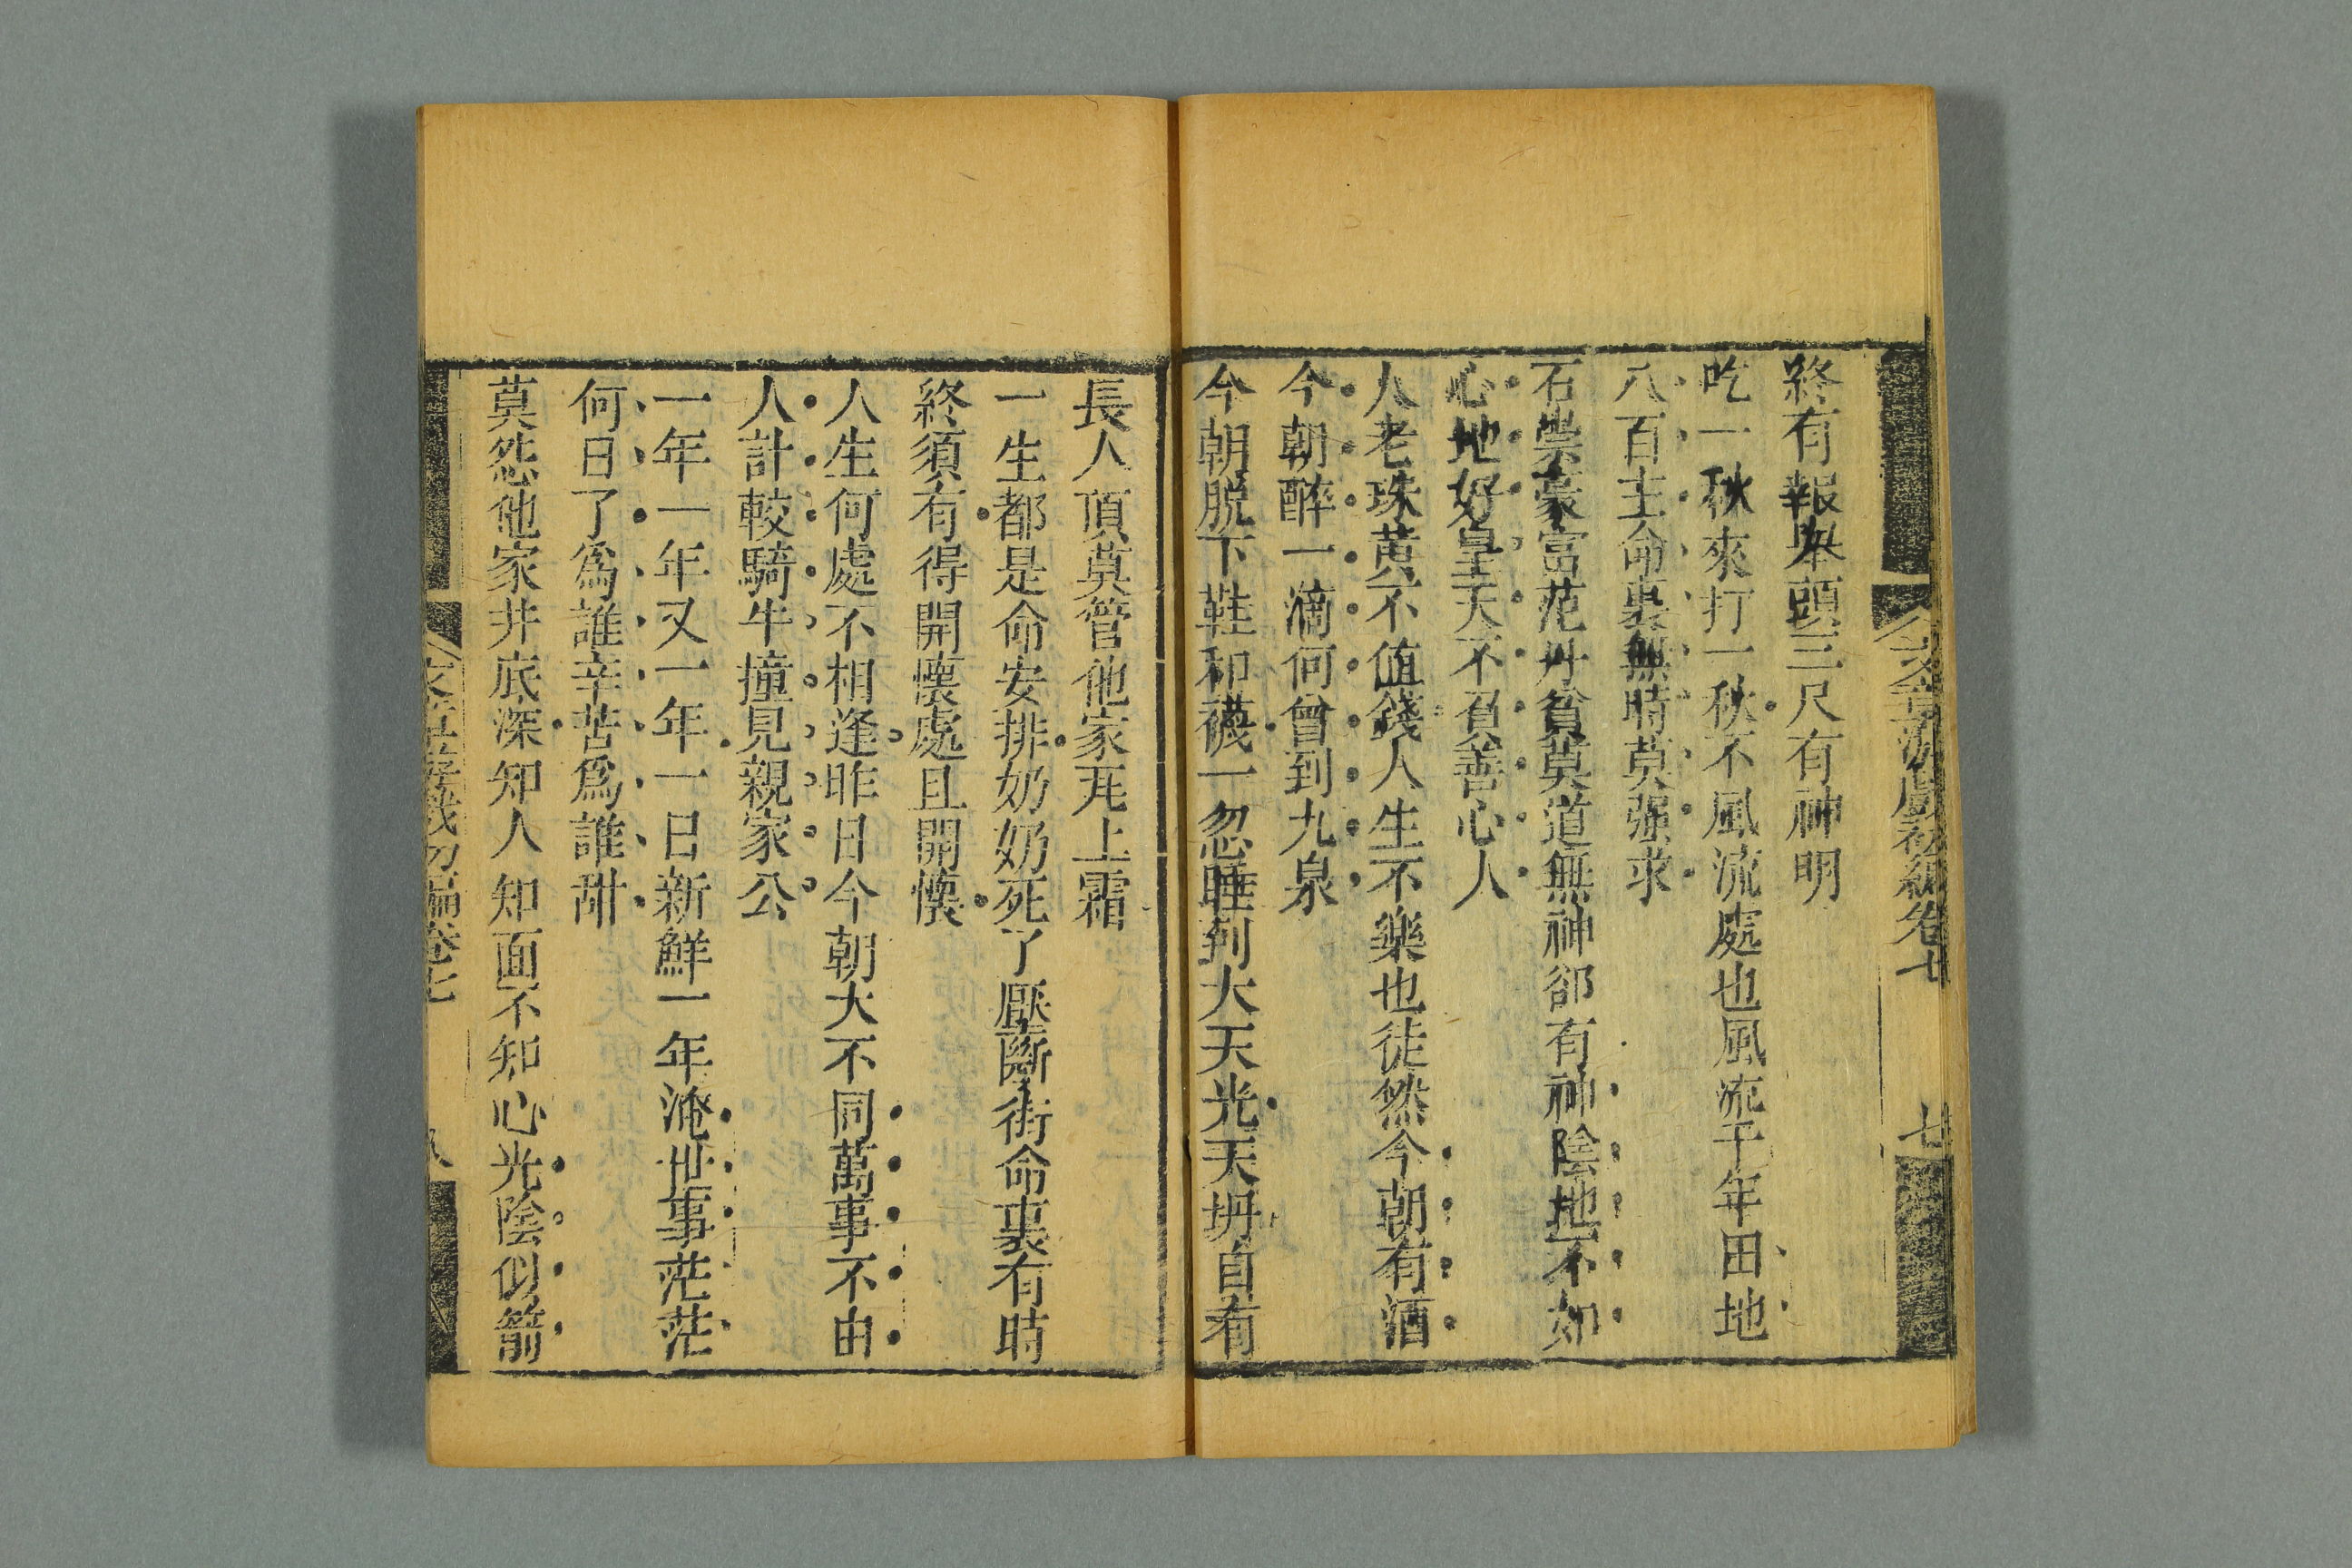 終有報舉頭三尺有神明
吃一秋來打一秋不風流處也風流千年田地
八百主命裏無時莫强求
石崇豪富范丹貧莫道無神卻有神陰地不如
心地好皇天不負善心人
人老珠黃不值錢人生不樂也徒然今朝有酒
今朝醉一滴何曾到九泉
今朝脱下鞋和襪一忽睡到大天光天坍自有
長人頂莫管他家瓦上霜
一生都是命安排奶奶死了壓斷街命裏有時
終須有得開懷處且開懷
人生何處不相逢昨日今朝大不同萬事不由
人計較騎牛撞見親家公
一年一年又一年一日新鮮一年淹世事茫茫
何日了爲誰辛苦爲誰甜
莫怨他家井底深知人知面不知心光陰似箭
卷七
七
卷七